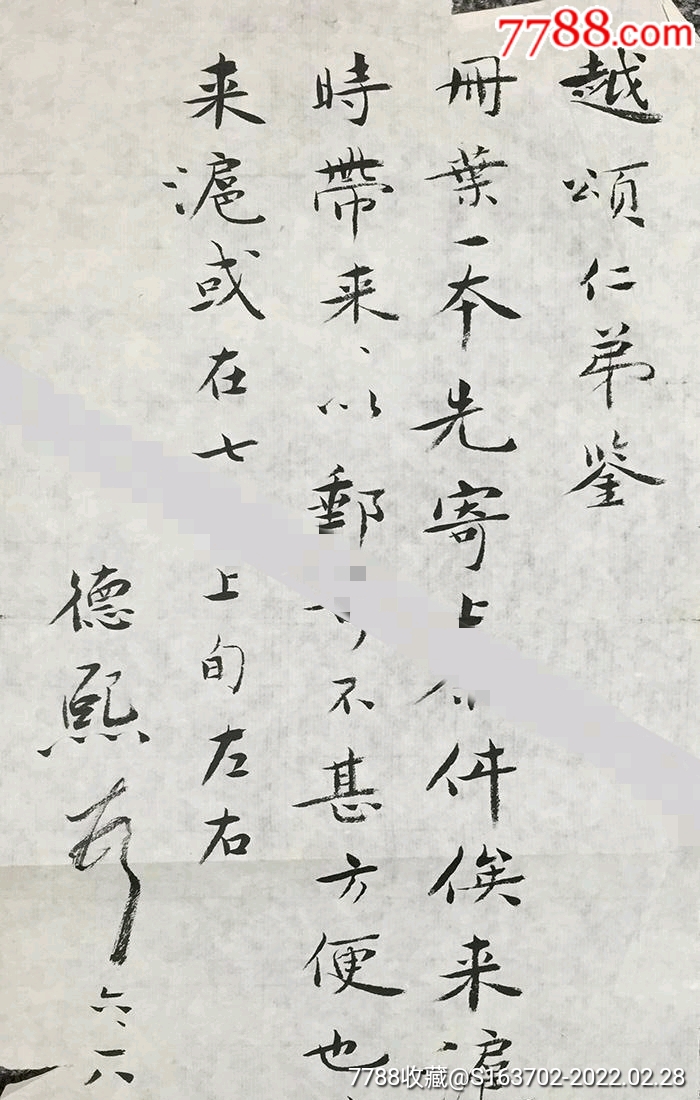 7788.com
越頌仁弟鑒
冊葉一本先寄上件俟来滬
時帶来以郵不甚方便也
来滬或在七上旬左右
德熙
六六
7788收藏@S163702-2022.02.28